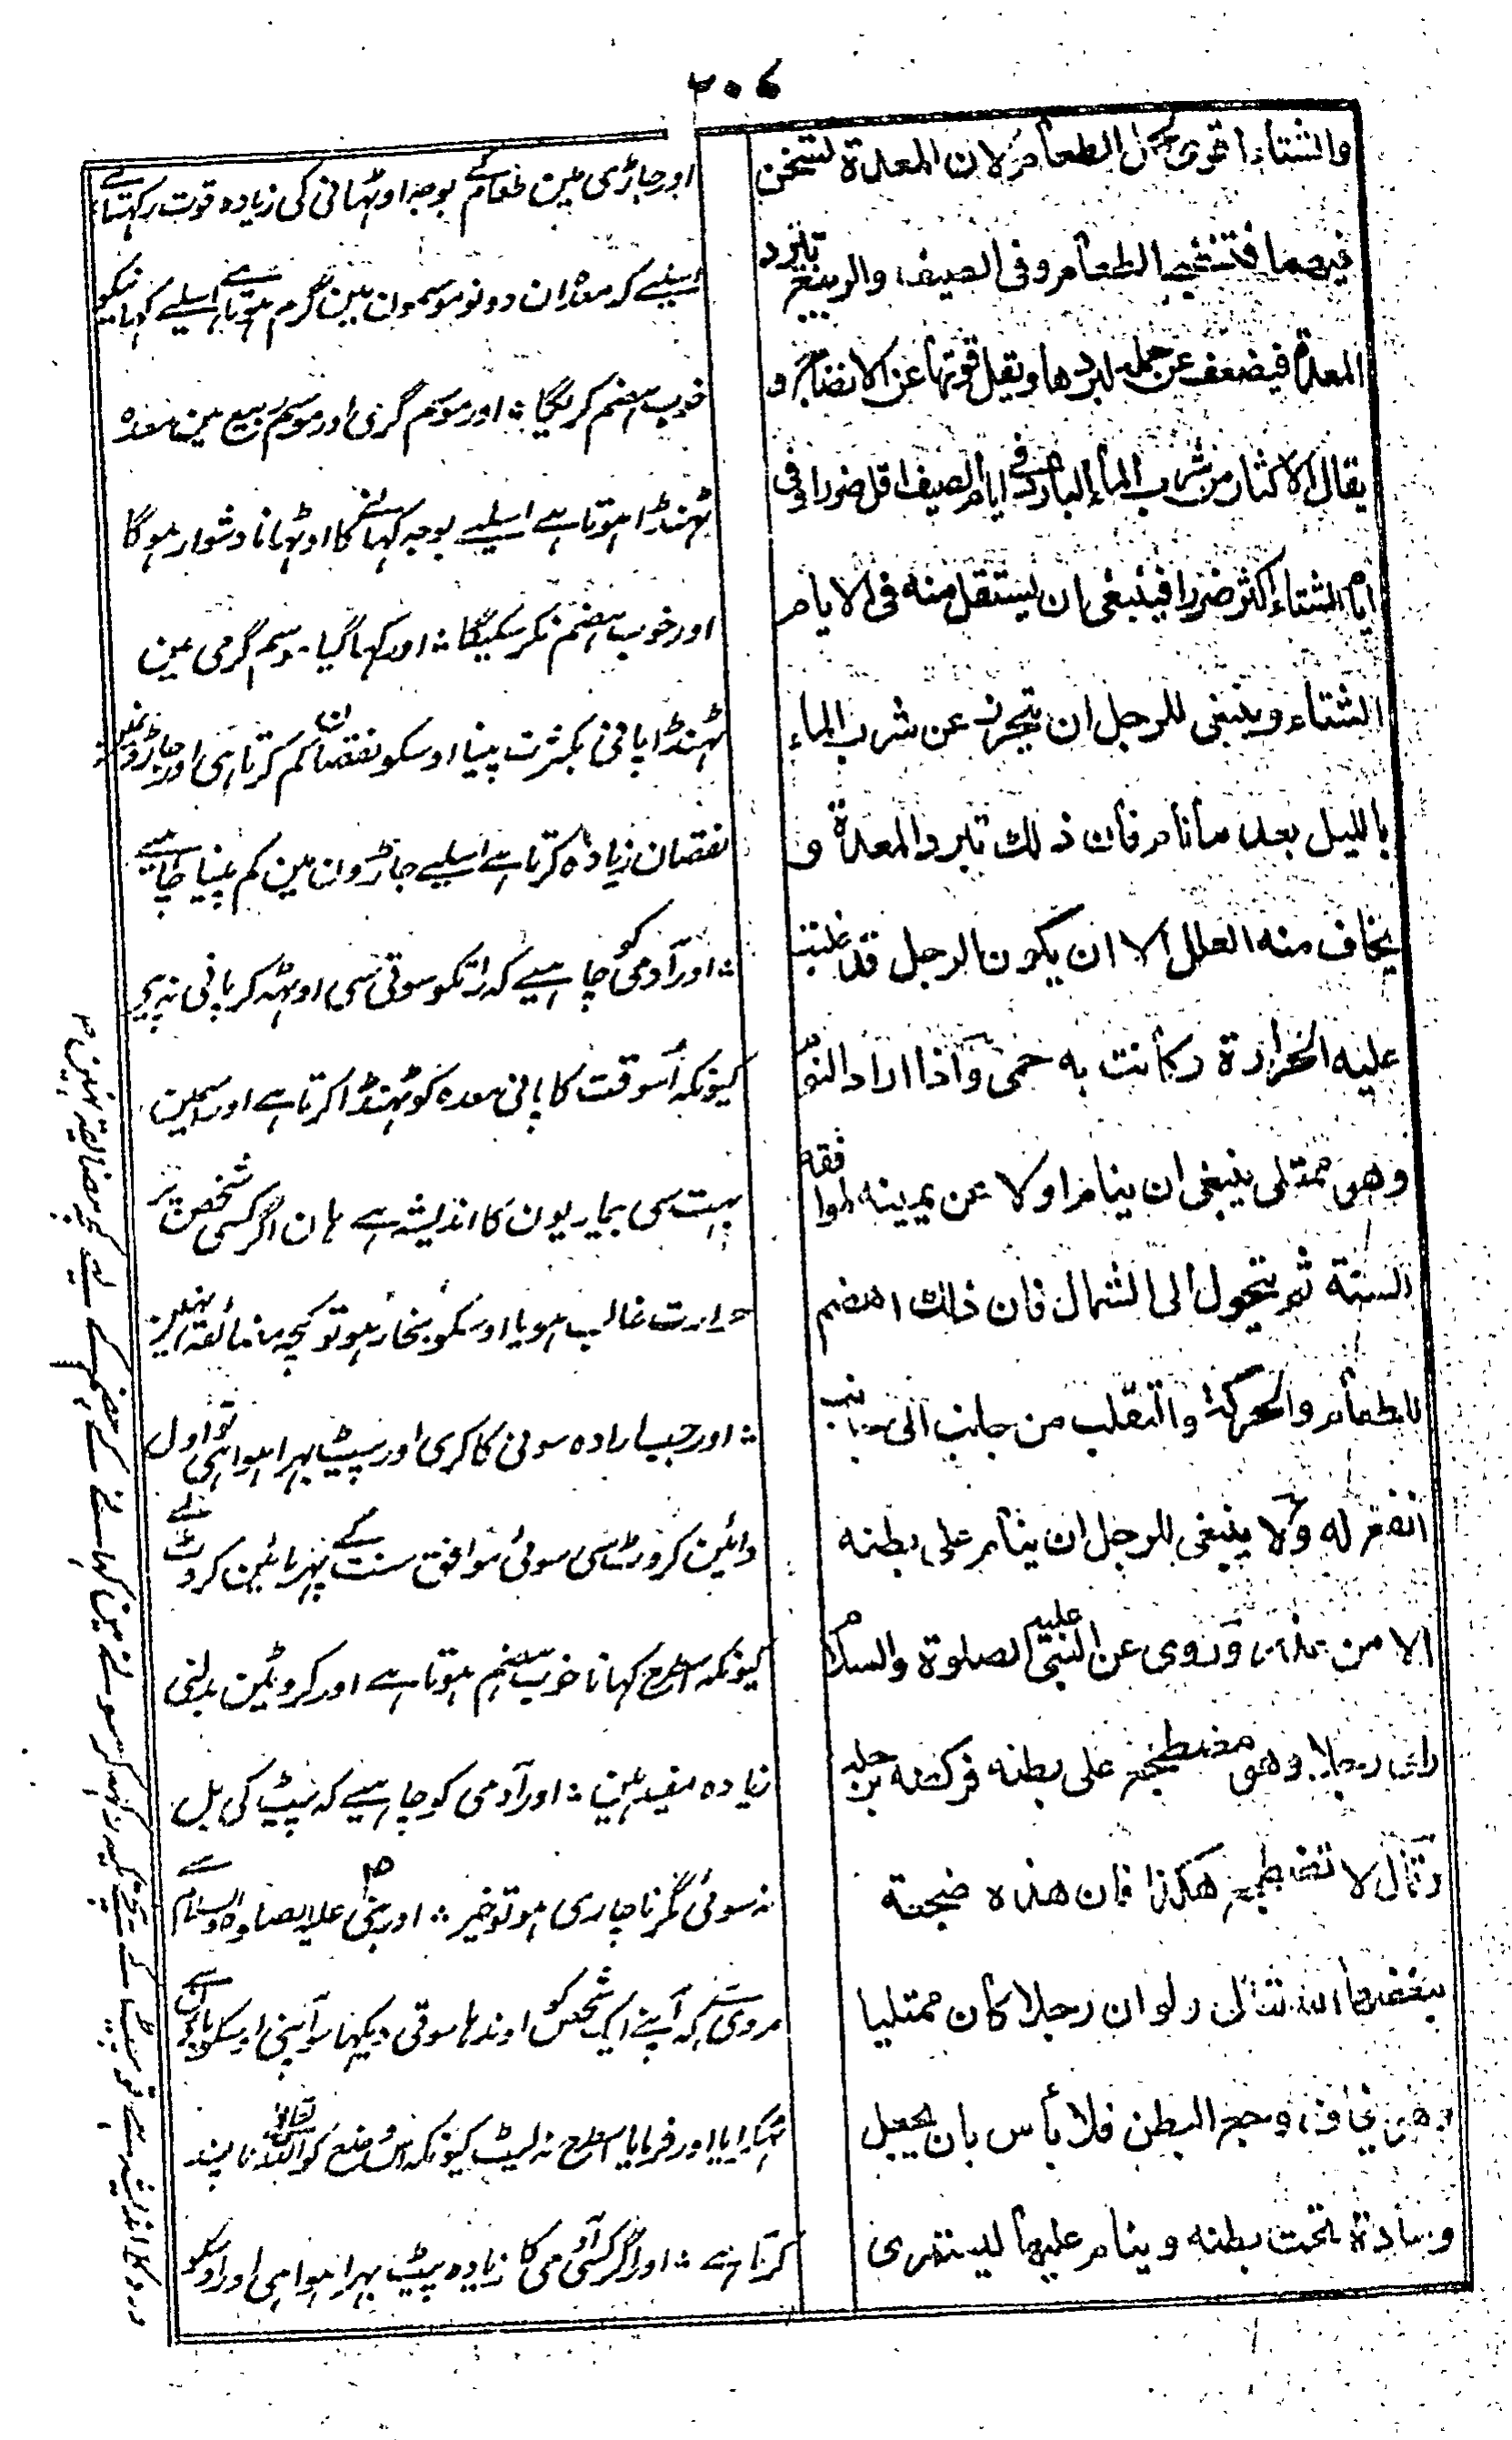 ۲۰۶
والشتاء اقوى لحمل الطعام لان المعدة تسخن
فيهما فتنضج الطعام وفى الصيف والربيع تبرد
المعدة فيضعف عن حمله لبردها وتقل قوتها عن الانضاج و
يقال الاكثار من شرب الماء البارد فى ايام الصيف اقل ضررا وفى
ايام الشتاء اكثر ضررا فينبغى ان يستقل منه فى الايام
الشتاء وينبغى للرجل ان يتحرز عن شرب الماء
بالليل بعد ما نام فان ذلك تبرد المعدة و
يخاف منه العلل الا ان يكون الرجل قد غلبت
عليه الحرارة وكانت به حمى واذا اراد النوم
وهو ممتلى ينبغى ان ينام اولا عن يمينه لموافقة
السنة ثم يتحول الى الشمال فان ذلك اهضم
للطعام والحركة والتقلب من جانب الى جانب
انفع له ولا ينبغى للرجل ان ينام على بطنه
الا من عذر وروى عن النبى عليه الصلوة والسلام
راى رجلا وهو مضطجع على بطنه فركضه برجله
وقال لا تضطجع هكذا فان هذه ضجعة
يبغضها الله تعالى ولو ان رجلا كان ممتليا
وهو يخاف وجع البطن فلا بأس بان يجعل
وسادة تحت بطنه وينام عليها ليستمرى
اور جاڑی مین طعام کے بوجہ اوٹہانی کی زیادہ قوت رکہتا ہے
اسلیے کہ معدہ ان دونو موسمون مین گرم ہوتا ہے اسلیے کہانیکو
خوب ہضم کریگا ؞ اور موسم گرمی اور موسم ربیع مین معدہ
ٹہنڈا ہوتا ہے اسلیے بوجہ کہانے کا اوٹہانا دشوار ہوگا
اور خوب ہضم نکر سکیگا ؞ اور کہا گیا موسم گرمی مین
ٹہنڈا پانی بکثرت پینا اوسکو نقصان کم کرتا ہی اور جاڑونمین
نقصان زیادہ کرتا ہے اسلیے جاڑون مین کم پینا چاہیے
؞ اور آدمی کو چاہیے کہ راتکو سوتی سی اوٹہہ کر پانی نہ پیے
کیونکہ اُسوقت کا پانی معدہ کو ٹہنڈا کرتا ہے اور اسمین
بہت سی بیماریون کا اندیشہ ہے ہان اگر کسی شخص پر
حرارت غالب ہو یا اوسکو بخار ہو تو کچہ مضائقہ نہین
؞ اور جب ارادہ سونی کا کری اور پیٹ بہرا ہوا ہی تو اول
دائین کروٹ سی سوئی موافق سنت کے پہر بائین کروٹ لے
کیونکہ اسطرح کہانا خوب ہضم ہوتا ہے اور کروٹین بدلنی
زیادہ مفید ہین ؞ اور آدمی کو چاہیے کہ پیٹ کی بل
نہ سوئی مگر ناچاری ہو تو خیر ؞ اور نبی علیہ الصلوۃ والسلام سے
مروی ہے کہ آپنے ایک شخص کو اوندہا سوتی دیکہا سو آپنی اوسکو پاؤن سے
ٹہکرایا اور فرمایا اسطرح نہ لیٹ کیونکہ اس وضع کو اللہ تعالی ناپسند
کرتا ہے ؞ اور اگر کسی آدمی کا زیادہ پیٹ بہرا ہوا ہی اور اوسکو
درد کا اندیشہ ہے تو پیٹ کے نیچے تکیہ رکہہ کر سونے مین کہانے کے ہضم کے لیے کچہ مضائقہ نہین ۱۲